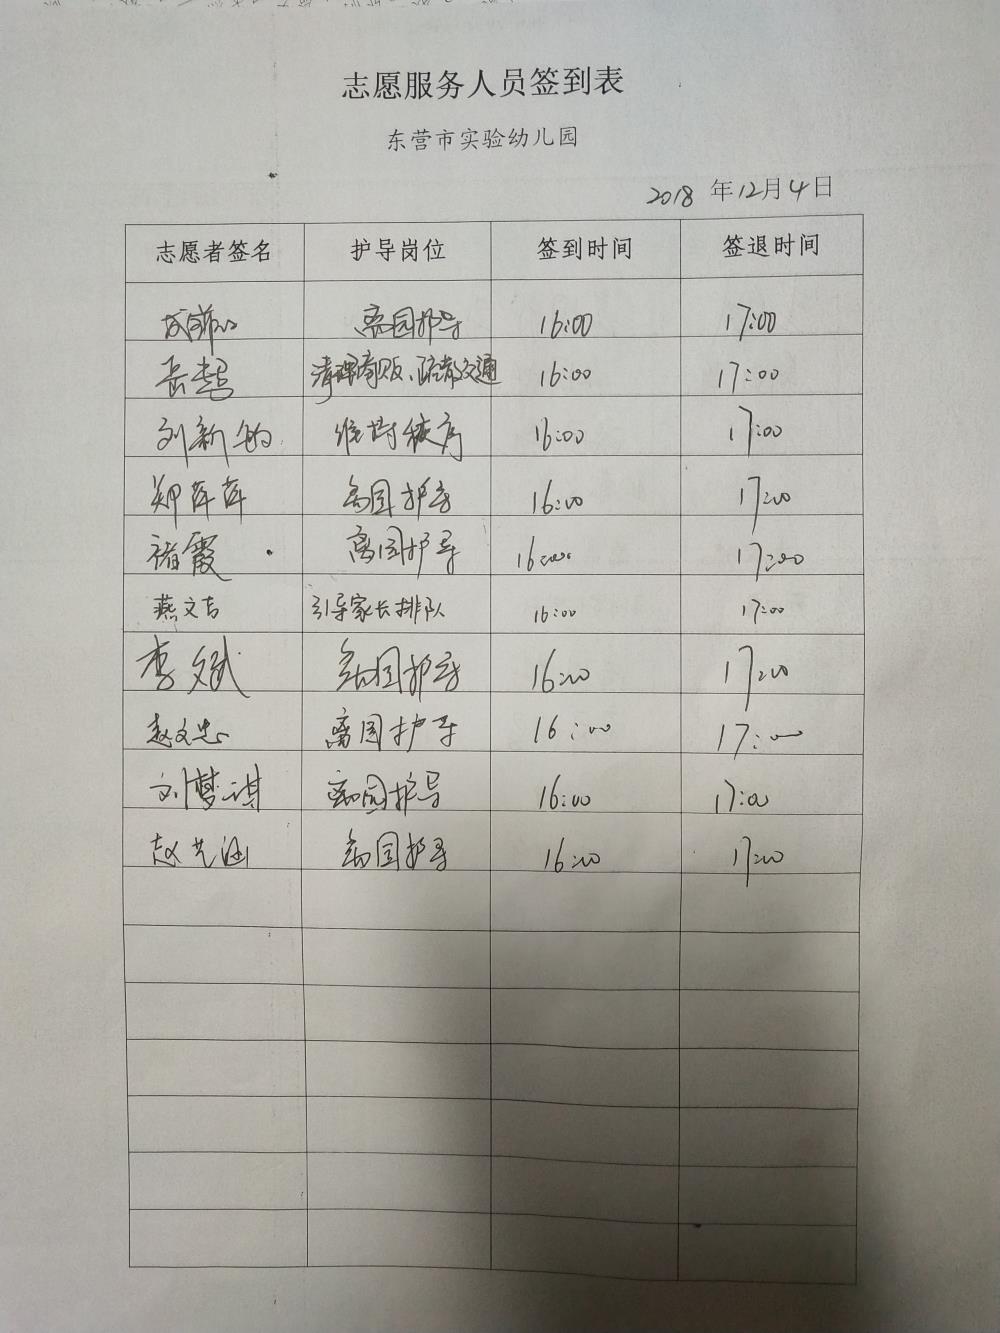 志愿服务人员签到表
东营市实验幼儿园
2018 年12月4日
志愿者签名 护导岗位 签到时间 签退时间
离园护导 16:00 17:00
岳超 清理商贩、疏散交通 16:00 17:00
刘新 维持秩序 16:00 17:00
郑萍萍 离园护导 16:00 17:00
褚霞 离园护导 16:00 17:00
燕文吉 引导家长排队 16:00 17:00
李文斌 离园护导 16:00 17:00
赵文忠 离园护导 16:00 17:00
刘梦琪 离园护导 16:00 17:00
赵艺涵 离园护导 16:00 17:00